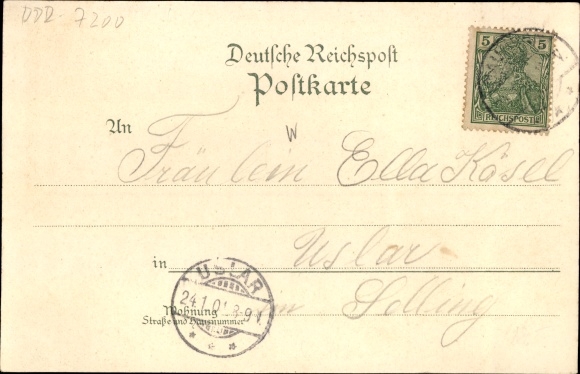 DDR-7200
Deutsche Reichspost
Postkarte
5 5
REICHSPOST
An
Fräulein Ella Kösel
in Uslar
USLAR
24.1.01.
Wohnung
Straße und Hausnummer
Solling